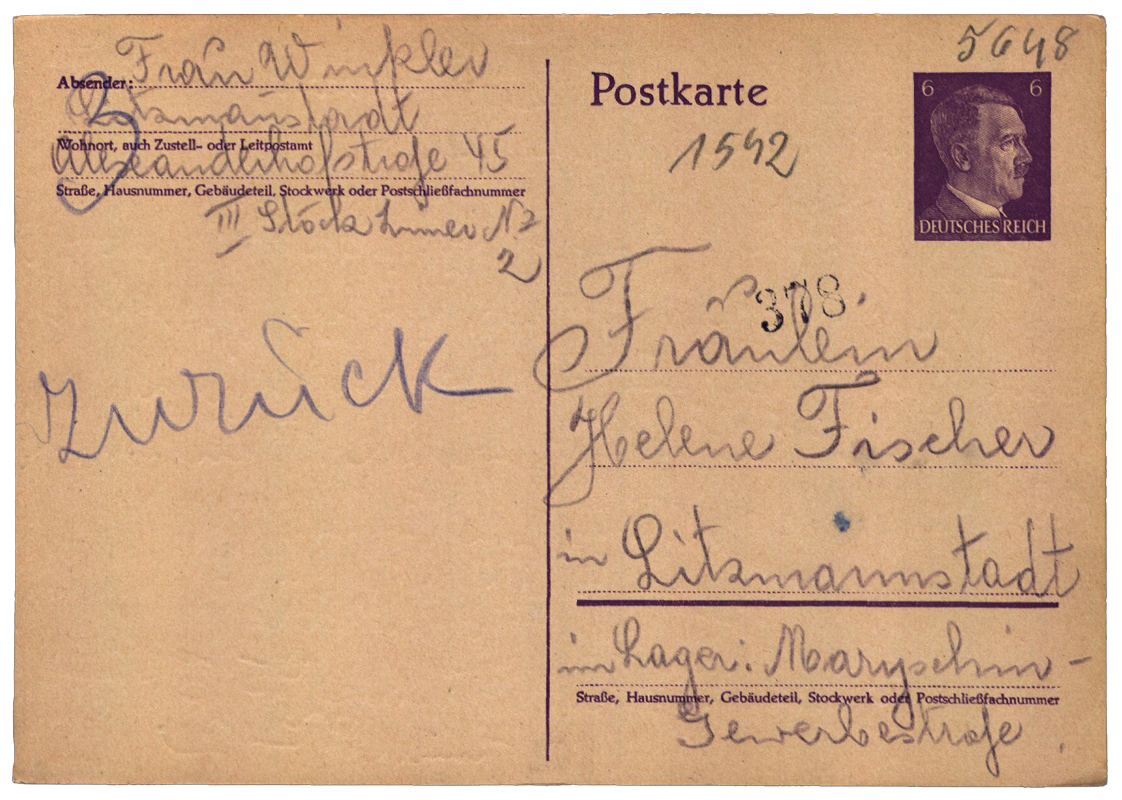 Absender: Frau Winkler
Litzmanustadt
Wohnort, auch Zustell- oder Leitpostamt
Alexandlehofstrofe 45
Straße, Hausnummer, Gebäudeteil, Stockwerk oder Postschließfachnummer
III Stock
2
zurück
5648
Postkarte
1542
6 6
DEUTSCHES REICH
378.
Fräulein
Helene Fischer
in Litzmannstadt
im Lager: Maryschin-
Straße, Hausnummer, Gebäudeteil, Stockwerk oder Postschließfachnummer
Gewerbestrofe